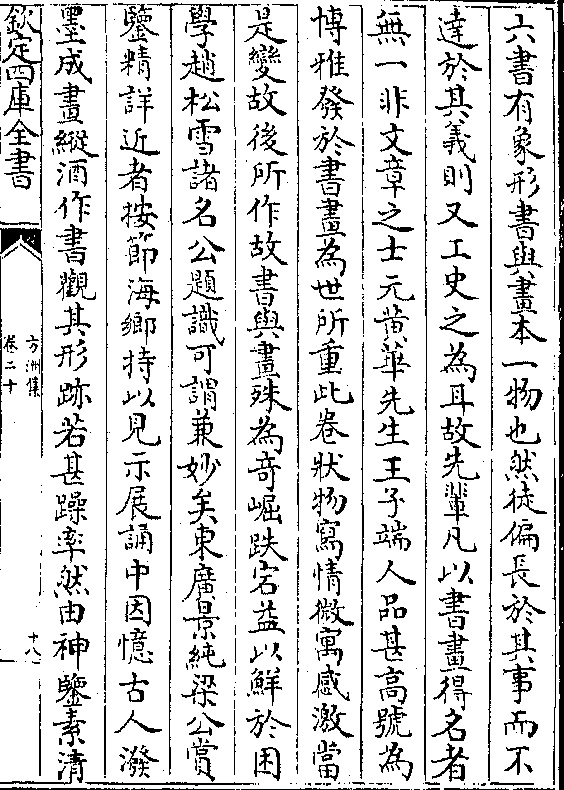 六書有象形書與畫本一物也然徒偏長於其事而不
達於其義則又工史之為耳故先輩凡以書畫得名者
無一非文章之士元黄華先生王子端人品甚高號為
博雅發於書畫為世所重此卷狀物寫情微寓感激當
是變故後所作故書與畫殊為竒崛跌宕益以鮮於困
學趙松雪諸名公題識可謂兼妙矣東廣景純梁公賞
鑒精詳近者按節海鄉持以見示展誦中因憶古人潑
墨成畫縱酒作書觀其形跡若甚躁率然由神鑒素清
欽定四庫全書
方洲集
卷二十
十八